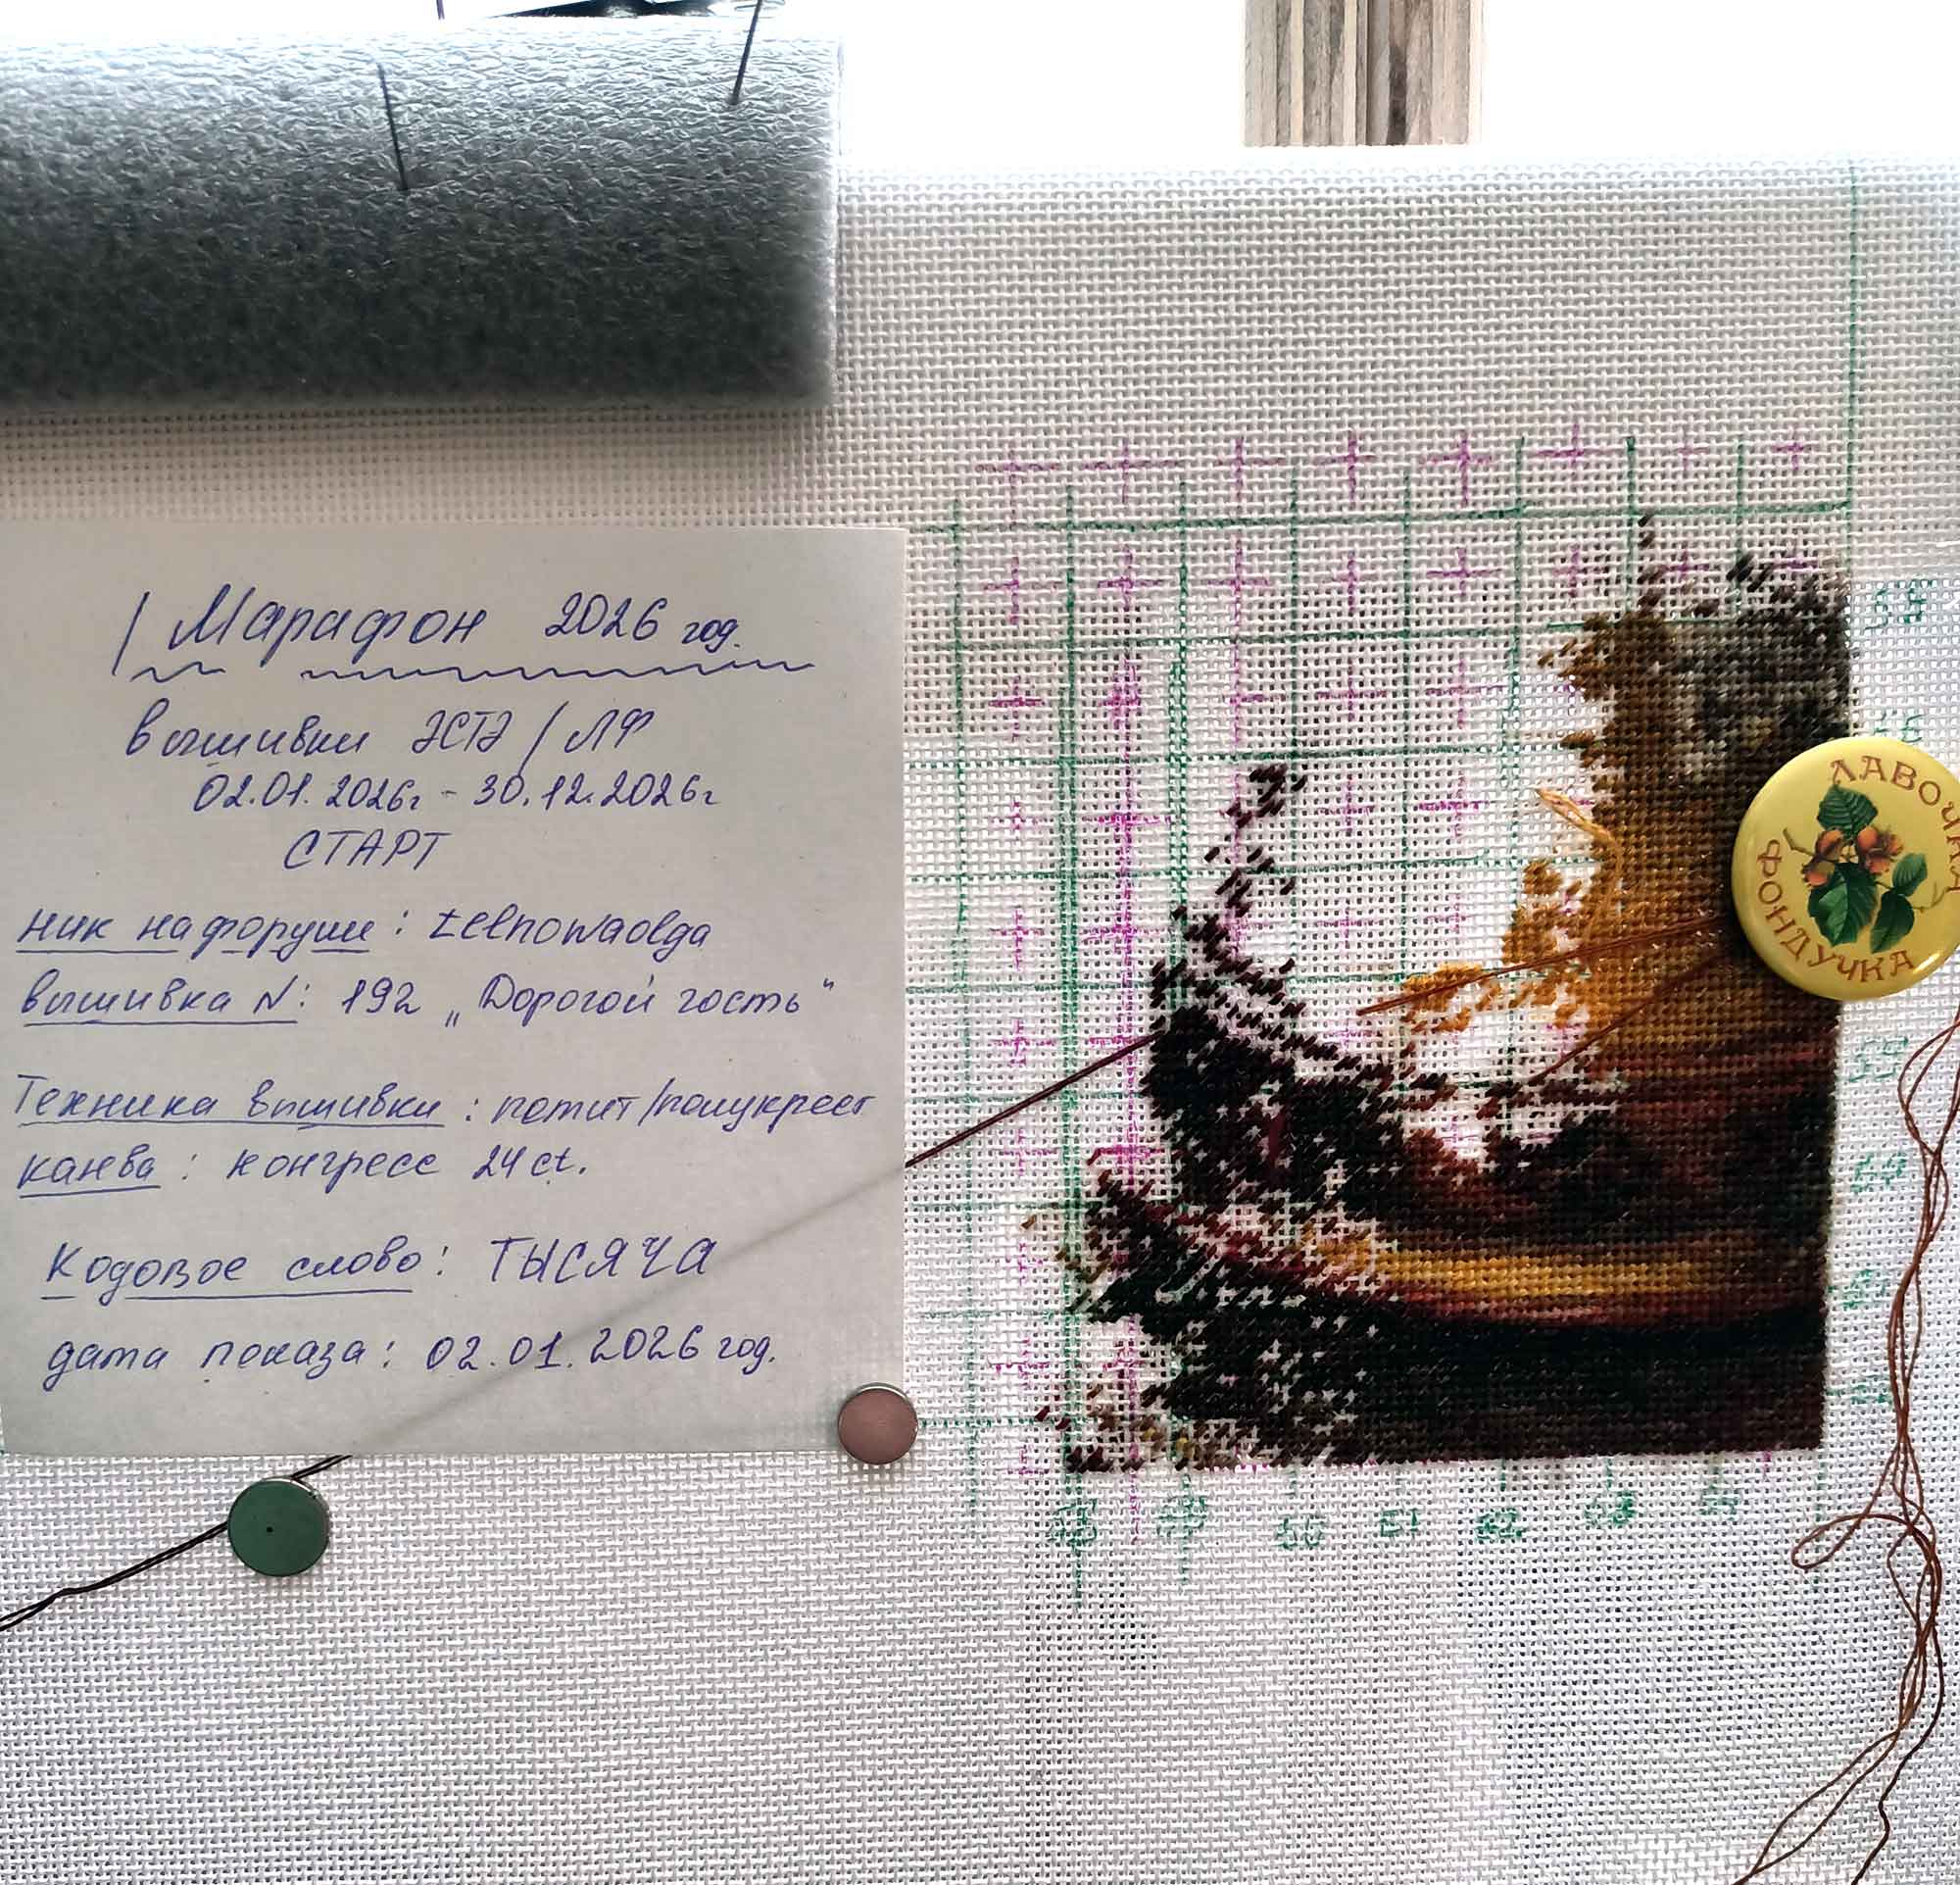 Марафон 2026 год.
вышивки ЭСТЭ / ЛФ
02.01.2026г - 30.12.2026г
СТАРТ
ник на форуме: zelnowaolga
вышивка N: 192 „Дорогой гость“
Техника вышивки: петит/полукрест
канва: конгресс 24 ct.
Кодовое слово: ТЫСЯЧА
дата показа: 02.01.2026 год.
ЛАВОЧКА
ФОНДУЧКА